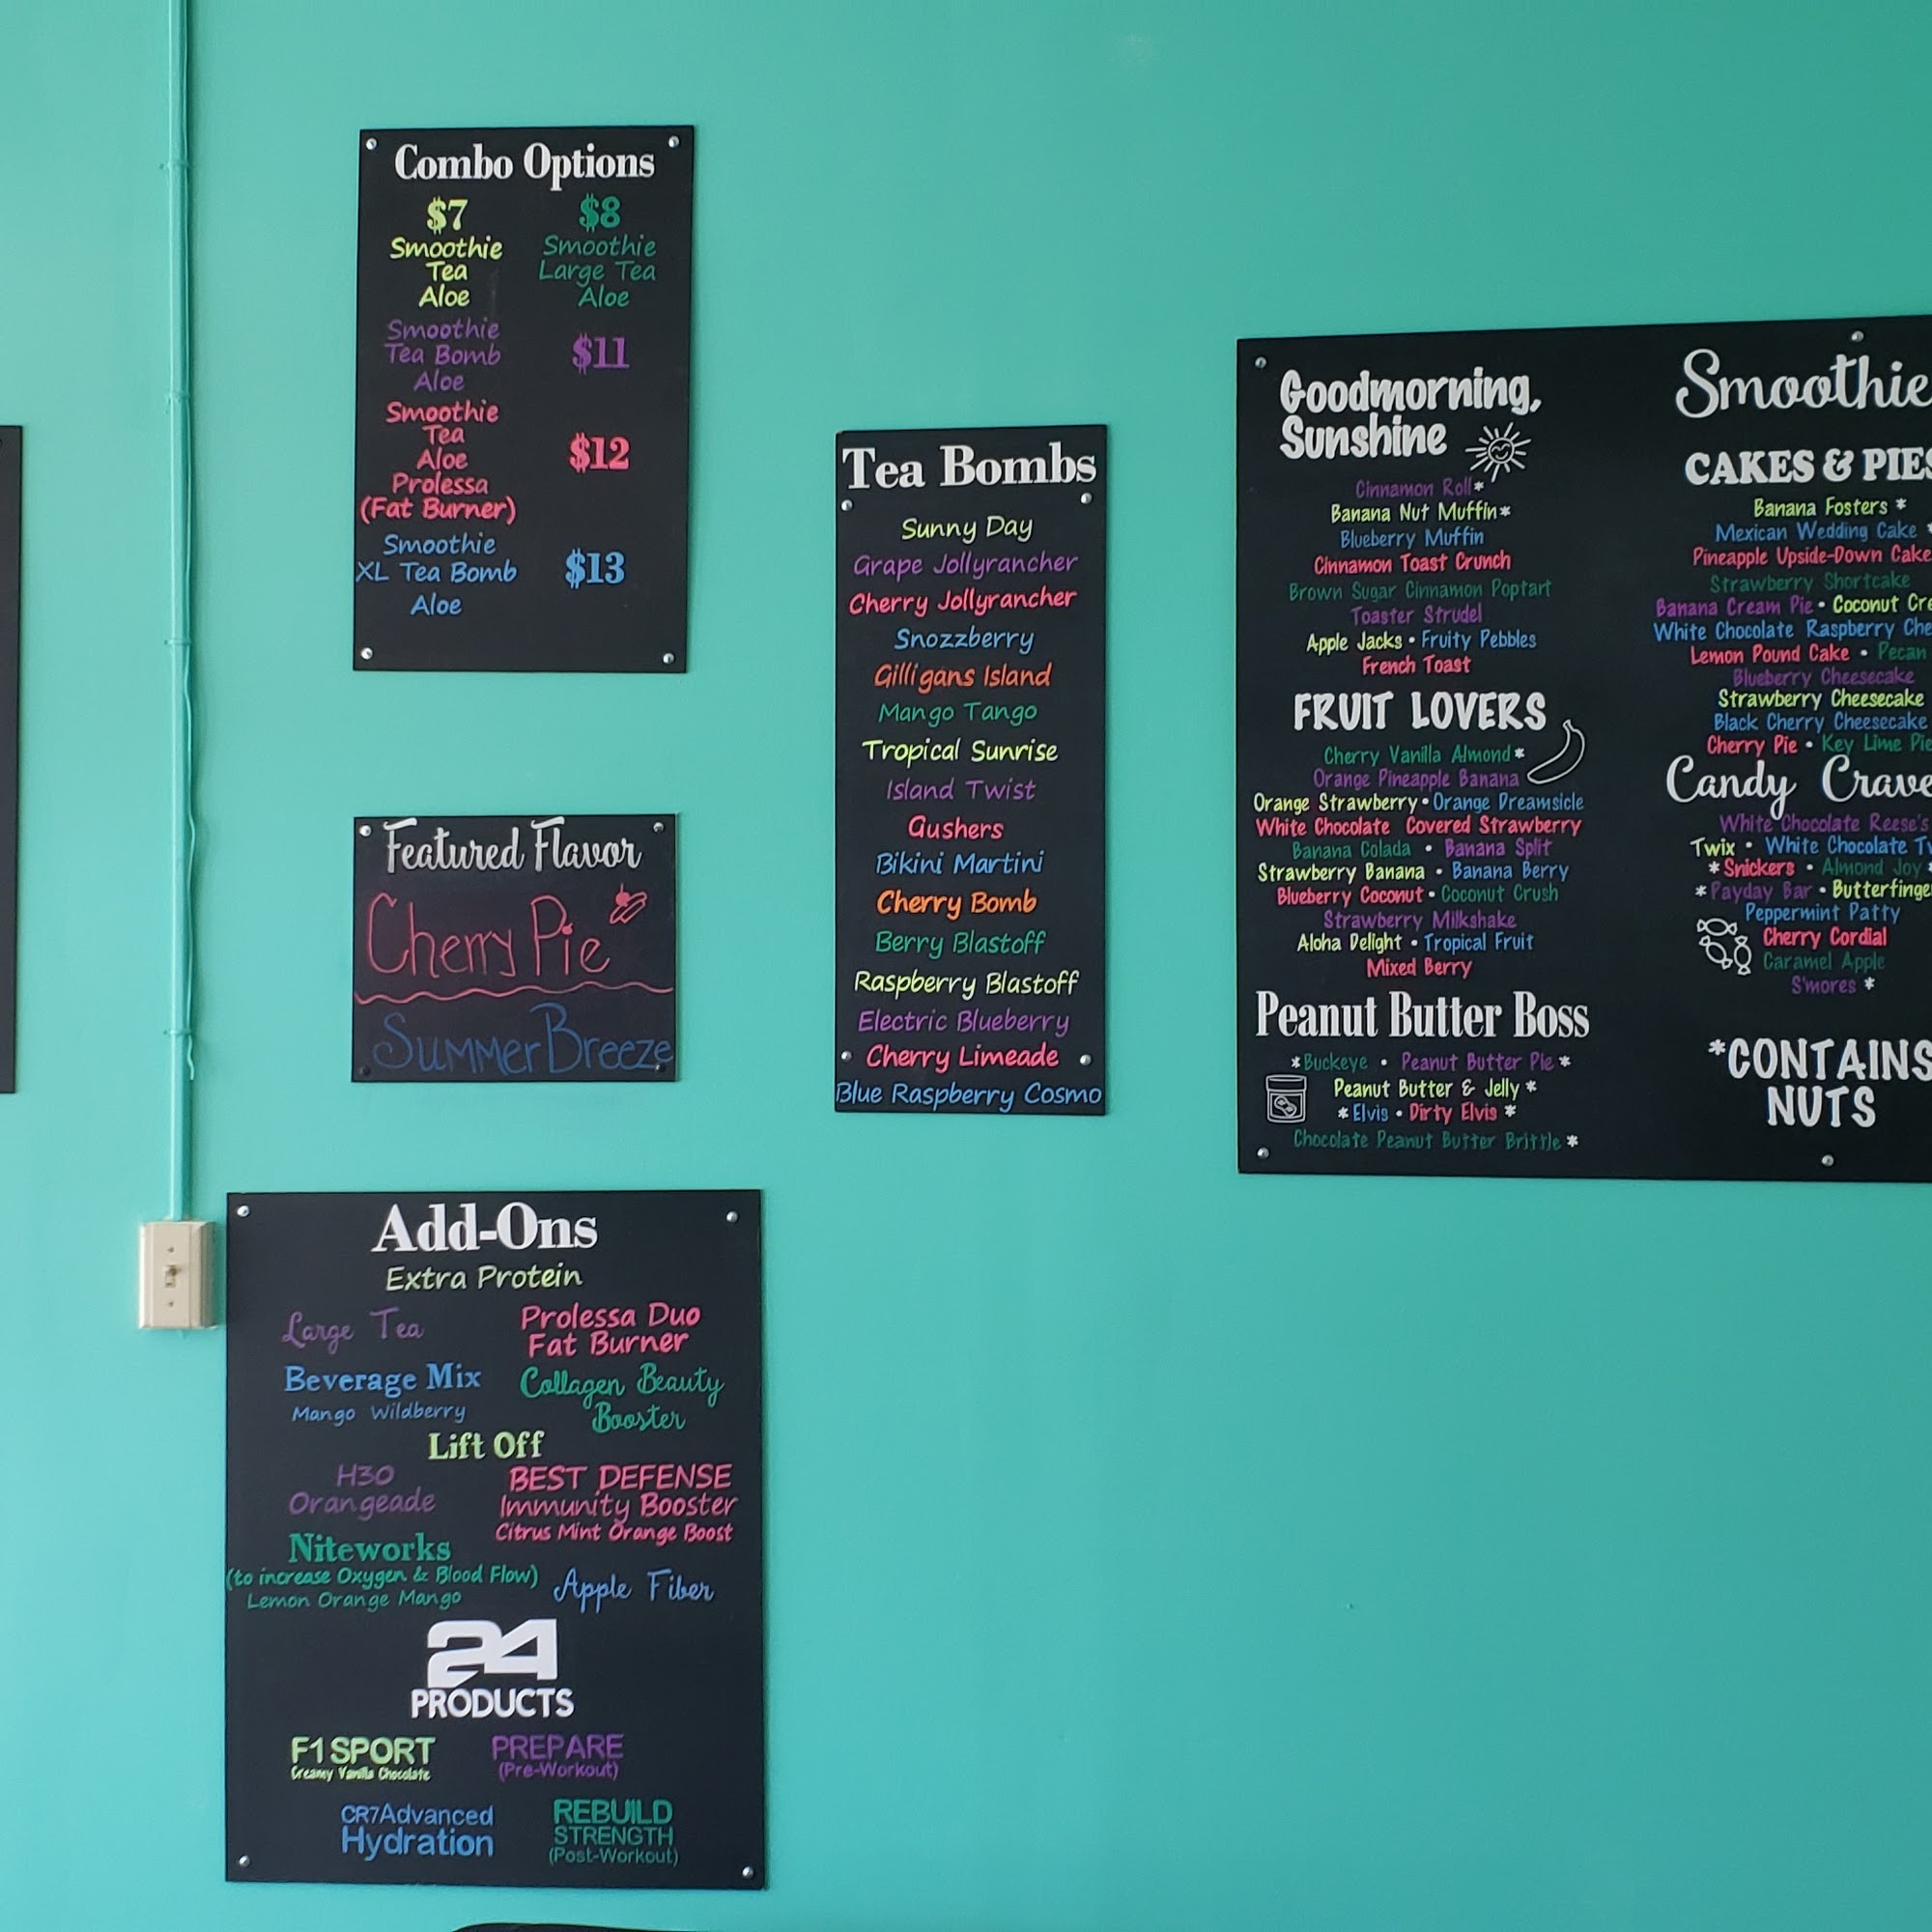 Combo Options
$7 $8
Smoothie Smoothie
Tea Large Tea
Aloe Aloe
Smoothie
Tea Bomb $11
Aloe
Smoothie
Tea
Aloe $12
Prolessa
(Fat Burner)
Smoothie
XL Tea Bomb $13
Aloe
Featured Flavor
Cherry Pie
Summer Breeze
Add-Ons
Extra Protein
Large Tea
Prolessa Duo
Fat Burner
Beverage Mix
Mango Wildberry
Collagen Beauty
Booster
Lift Off
H3O
Orangeade
BEST DEFENSE
Immunity Booster
Citrus Mint Orange Boost
Niteworks
(to increase Oxygen & Blood Flow)
Lemon Orange Mango
Apple Fiber
24
PRODUCTS
F1 SPORT
Creamy Vanilla Chocolate
PREPARE
(Pre-Workout)
CR7Advanced
Hydration
REBUILD
STRENGTH
(Post-Workout)
Tea Bombs
Sunny Day
Grape Jollyrancher
Cherry Jollyrancher
Snozzberry
Gilligans Island
Mango Tango
Tropical Sunrise
Island Twist
Gushers
Bikini Martini
Cherry Bomb
Berry Blastoff
Raspberry Blastoff
Electric Blueberry
Cherry Limeade
Blue Raspberry Cosmo
Goodmorning,
Sunshine
Cinnamon Roll*
Banana Nut Muffin*
Blueberry Muffin
Cinnamon Toast Crunch
Brown Sugar Cinnamon Poptart
Toaster Strudel
Apple Jacks • Fruity Pebbles
French Toast
FRUIT LOVERS
Cherry Vanilla Almond*
Orange Pineapple Banana
Orange Strawberry • Orange Dreamsicle
White Chocolate Covered Strawberry
Banana Colada • Banana Split
Strawberry Banana • Banana Berry
Blueberry Coconut • Coconut Crush
Strawberry Milkshake
Aloha Delight • Tropical Fruit
Mixed Berry
Peanut Butter Boss
*Buckeye • Peanut Butter Pie*
Peanut Butter & Jelly*
*Elvis • Dirty Elvis*
Chocolate Peanut Butter Brittle*
Smoothie
CAKES & PIES
Banana Fosters *
Mexican Wedding Cake *
Pineapple Upside-Down Cake
Strawberry Shortcake
Banana Cream Pie • Coconut Cre
White Chocolate Raspberry Che
Lemon Pound Cake • Pecan
Blueberry Cheesecake
Strawberry Cheesecake
Black Cherry Cheesecake
Cherry Pie • Key Lime Pie
Candy Crave
White Chocolate Reese's
Twix • White Chocolate Tw
*Snickers • Almond Joy*
*Payday Bar • Butterfinge
Peppermint Patty
Cherry Cordial
Caramel Apple
S'mores *
*CONTAINS
NUTS